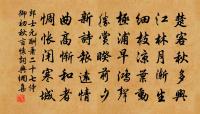 楚客秋多興
江林月漸生
細枝涼葉動
極浦早鴻聲
勝賞睽前夕
新詩報遠情
曲高慚和者
惆悵閉寒城
郎士元酬蕭二十七侍
御初秋言懷詞典圖集